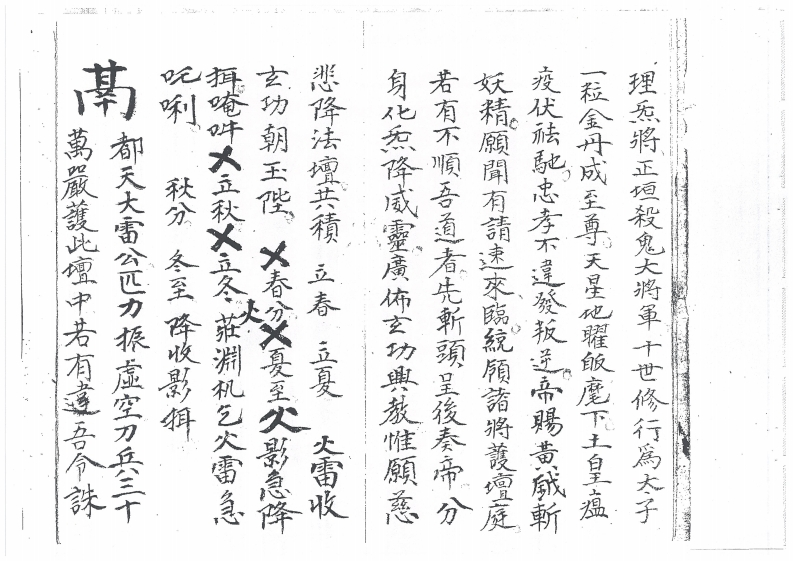 理炁將正垣殺鬼大將軍十世修行為太子
一粒金丹成至尊天星地曜皈麾下土皇瘟
疫伏祛馳忠孝不違發叛逆帝賜黃鉞斬
妖精願聞有請速來臨統領諸將護壇庭
若有不順吾道者先斬頭呈後奏帝分
身化炁降威靈廣佈玄功興教惟願慈
悲降法壇共積 立春 立夏 火雷收
玄功朝玉陛 乂春分乂夏至火影急降
挕唵吽乂立秋乂立冬火莊淵机乞火雷急
吒唎 秋分 冬至 降收影挕
都天大雷公匹力振虛空刀兵三十
萬嚴護此壇中若有違吾令誅